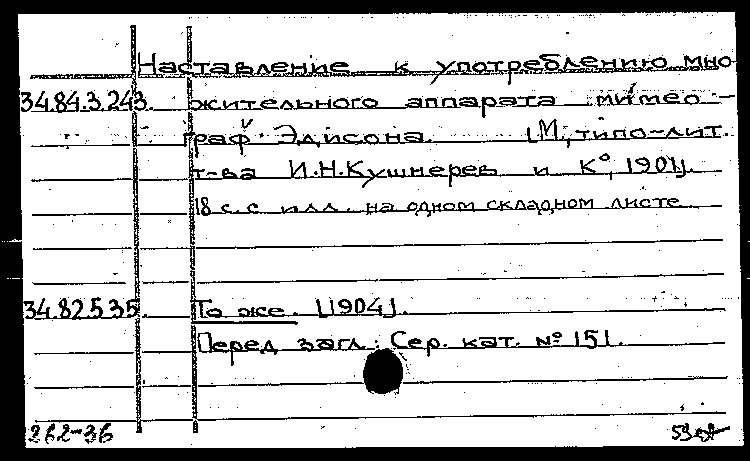 Наставление к употреблению мно-
34.84.3.243. жительного аппарата мимео-
граф Эдисона. [М., типо-лит.
т-ва И.Н.Кушнерев и К°, 1901].
18 с. с илл. на одном складном листе
34.82.5.35. То же. [1904].
Перед загл.: Сер. кат. № 151.
262-36